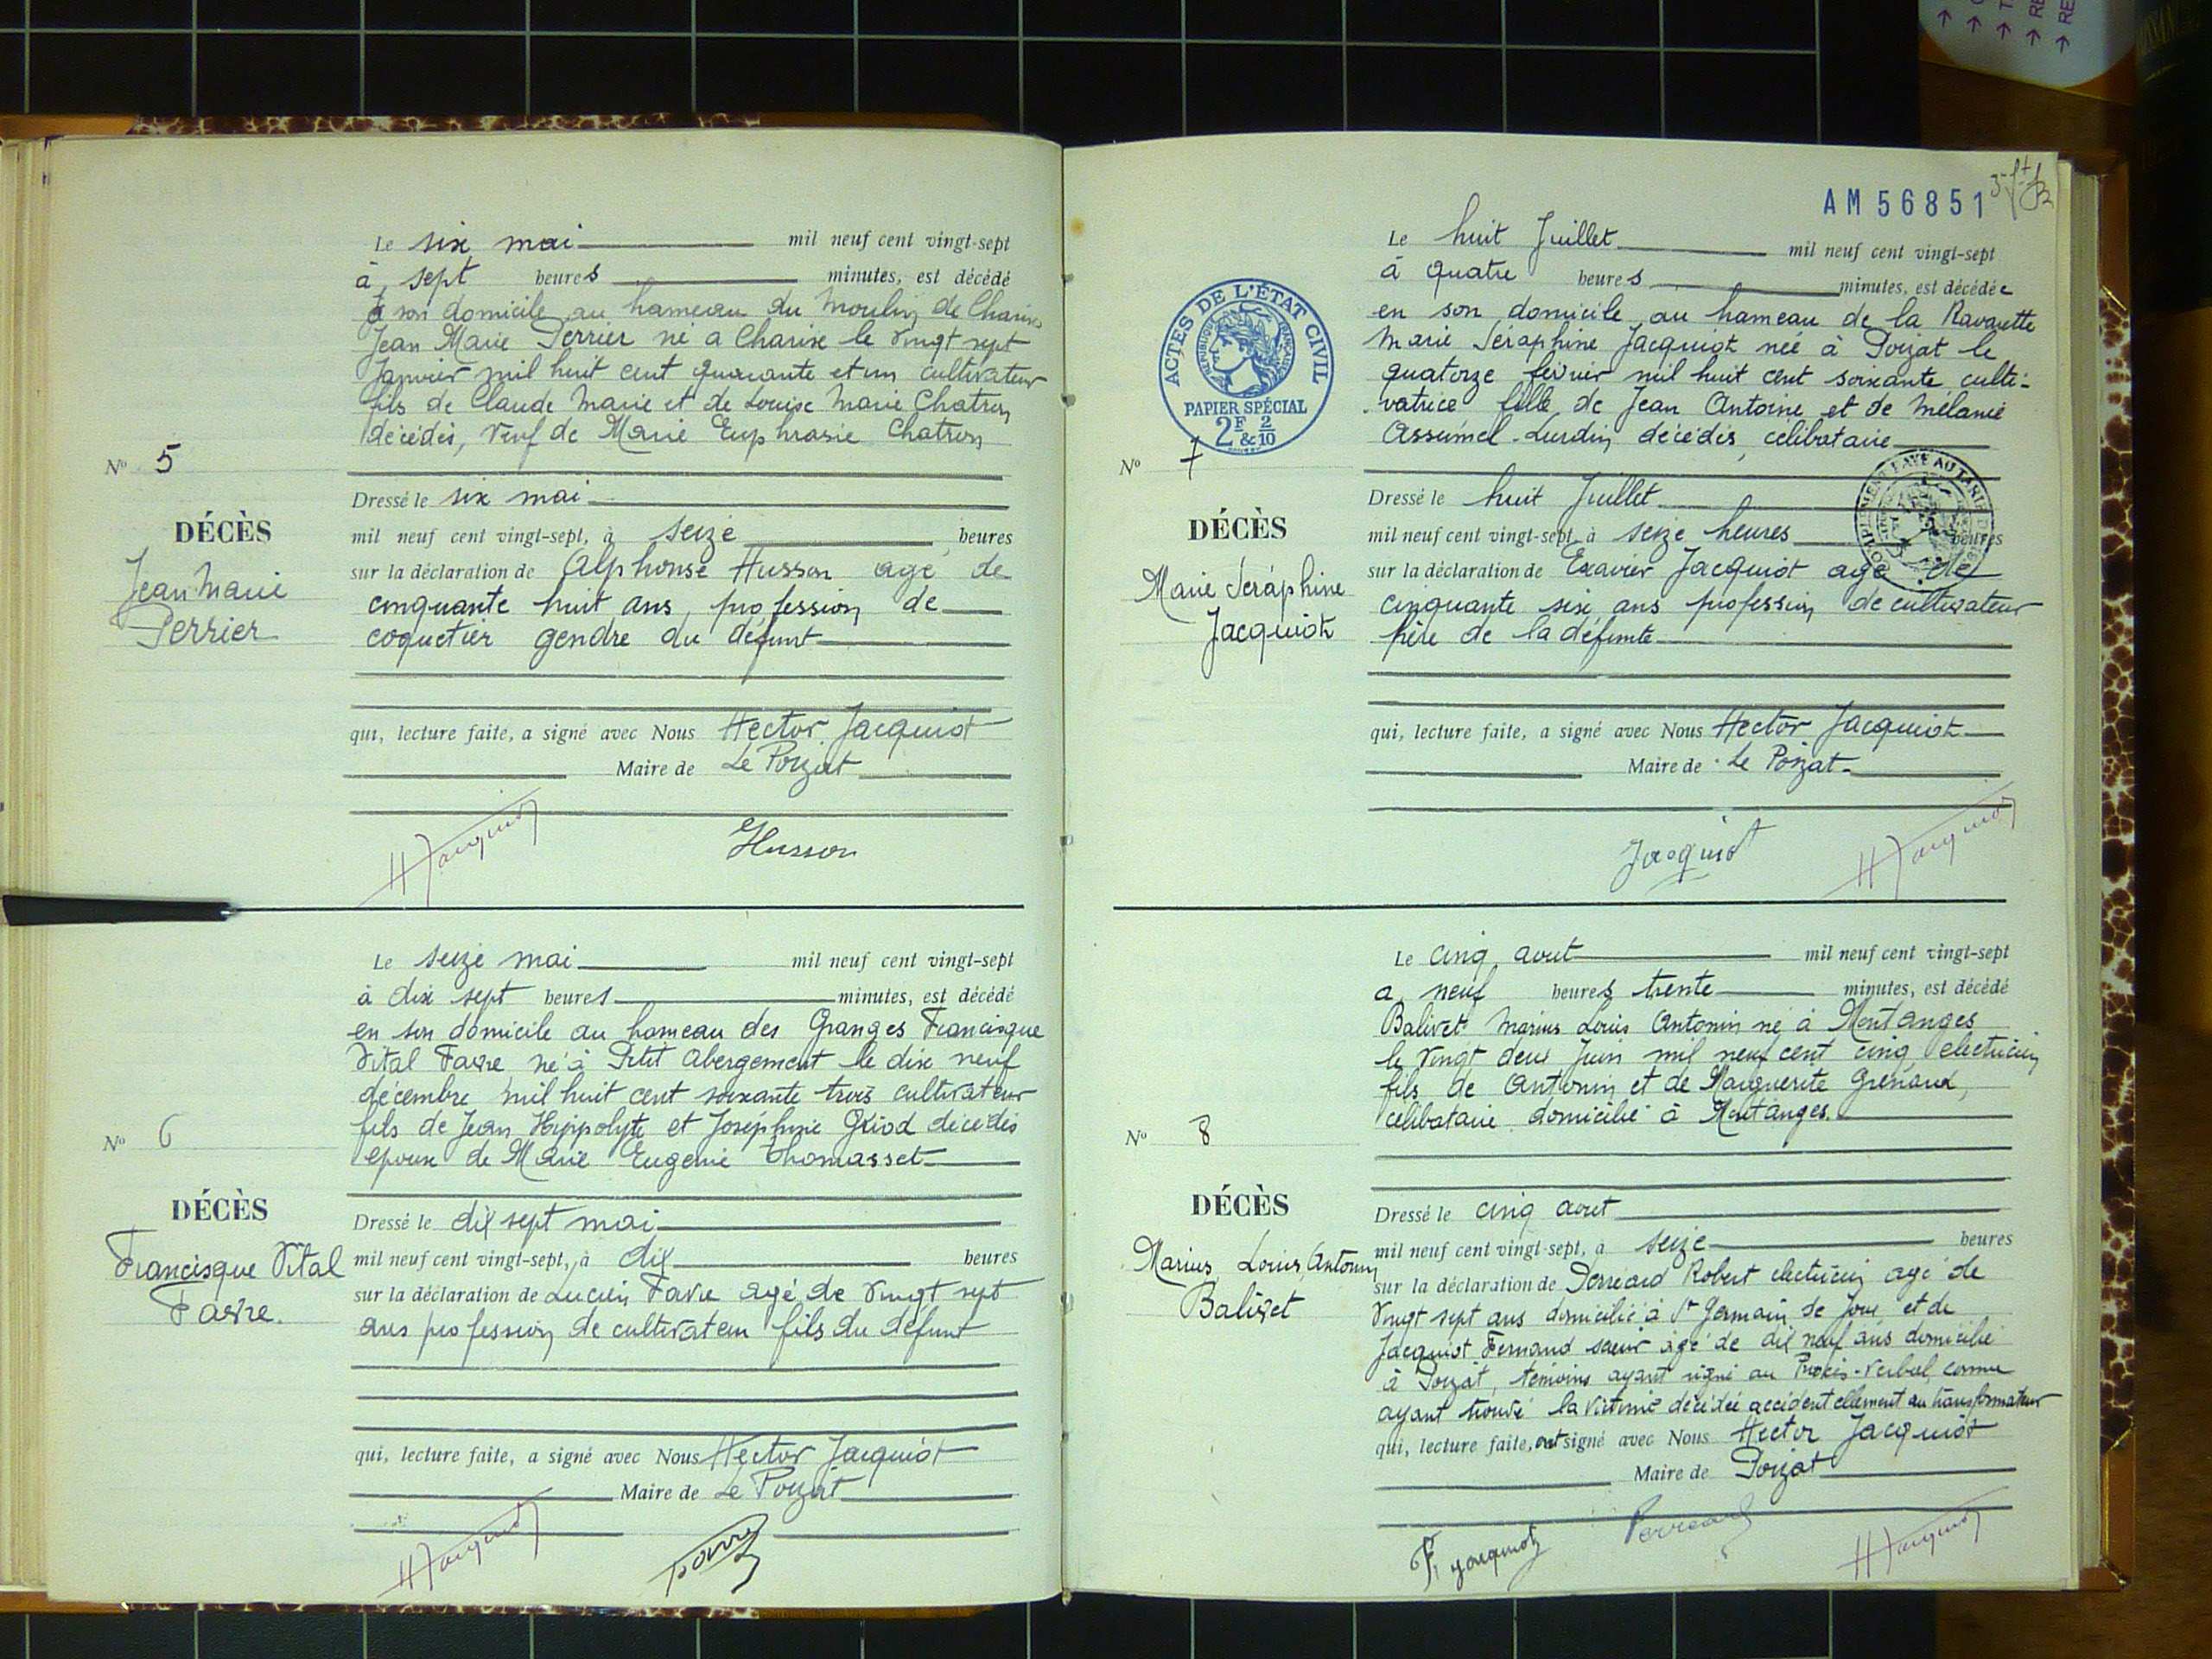 Le six mai mil neuf cent vingt-sept
à sept heures minutes, est décédé
à son domicile au hameau du Moulin de Charix
Jean Marie Perrier né a Charix le vingt sept
Janvier mil huit cent quarante et un cultivateur
fils de Claude Marie et de Louise Marie Chatron
décédés, veuf de Marie Euphrasie Chatron
No 5
DÉCÈS
Jean Marie
Perrier
Dressé le six mai
mil neuf cent vingt-sept, à seize heures
sur la déclaration de Alphonse Husson agé de
cinquante huit ans, profession de
coquetier gendre du défunt
qui, lecture faite, a signé avec Nous Hector Jacquiot
Maire de Le Poizat
H Jacquiot
Husson
Le seize mai mil neuf cent vingt-sept
à dix sept heures minutes, est décédé
en son domicile au hameau des Granges Francisque
Vital Favre né à Petit Abergement le dix neuf
décembre mil huit cent soixante trois cultivateur
fils de Jean Hippolyte et Joséphine décédés
époux de Marie Eugenie Thomasset
No 6
DÉCÈS
Francisque Vital
Favre.
Dressé le dix sept mai
mil neuf cent vingt-sept, à dix heures
sur la déclaration de Lucien Favre agé de vingt sept
ans profession de cultivateur fils du défunt
qui, lecture faite, a signé avec Nous Hector Jacquiot
Maire de Le Poizat
H Jacquiot
Favre
AM 56851
Le huit Juillet mil neuf cent vingt-sept
à quatre heures minutes, est décédée
en son domicile au hameau de la Ravavette
Marie Séraphine Jacquiot née à Poizat le
quatorze février mil huit cent soixante culti-
vatrice fille de Jean Antoine et de Mélanie
Assumel-Lurdin décédés, célibataire
ACTES DE L'ÉTAT CIVIL
RÉPUBLIQUE FRANÇAISE
PAPIER SPÉCIAL
2F & 2/10
No 7
DÉCÈS
Marie Séraphine
Jacquiot
Dressé le huit Juillet
mil neuf cent vingt-sept à seize heures heures
sur la déclaration de Exavier Jacquiot agé de
cinquante six ans profession de cultivateur
frère de la défunte
qui, lecture faite, a signé avec Nous Hector Jacquiot
Maire de Le Poizat
Jacquiot
H Jacquiot
Le cinq aout mil neuf cent vingt-sept
a neuf heures trente minutes, est décédé
Balivet Marius Louis Antonin né à Montanges
le vingt deux Juin mil neuf cent cinq électricien
fils de Antonin et de Marguerite Grenaux,
célibataire domicilié à Montanges.
No 8
DÉCÈS
Marius, Louis, Antonin
Balivet
Dressé le cinq aout
mil neuf cent vingt-sept, à seize heures
sur la déclaration de Perréard Robert électricien agé de
Vingt sept ans domicilié à St Germain de Joux et de
Jacquiot Fernand scieur agé de dix neuf ans domicilié
à Poizat, témoins ayant signé au Procès-Verbal, comme
ayant trouvé la victime décédée accidentellement au transformateur
qui, lecture faite, ont signé avec Nous Hector Jacquiot
Maire de Poizat
F. Jacquiot
Perreard
H Jacquiot